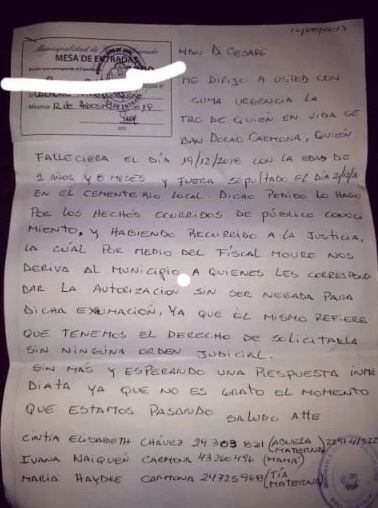 Municipalidad de
MESA DE ENTRADAS
12 de Agosto
ME DIRIJO A USTED CON
SUMA URGENCIA LA
TRO DE QUIÉN EN VIDA SE
CARMONA, QUIÉN
FALLECIERA EL DÍA 19/12/2018 CON LA EDAD DE
2 AÑOS Y 8 MESES Y FUERA SEPULTADO EL DÍA
EN EL CEMENTERIO LOCAL. DICHO PEDIDO LO HAGO
POR LOS HECHOS OCURRIDOS DE PÚBLICO CONOCI
MIENTO, Y HABIENDO RECURRIDO A LA JUSTICIA,
LA CUÁL POR MEDIO DEL FISCAL MOURE NOS
DERIVA AL MUNICIPIO A QUIENES LES CORRESPOND
DAR LA AUTORIZACIÓN SIN SER NEGADA PARA
DICHA EXUMACIÓN, YA QUE ÉL MISMO REFIERE
QUE TENEMOS EL DERECHO DE SOLICITARLA
SIN NINGÚNA ORDEN JUDICIAL.
SIN MÁS Y ESPERANDO UNA RESPUESTA INME
DIATA YA QUE NO ES GRATO EL MOMENTO
QUE ESTAMOS PASANDO SALUDO ATTE
CINTIA ELISABETH CHÁVEZ 29 309 821 (ABUELA MATERNA)
IVANA NAIQUEN CARMONA 43260496 (MAMÁ)
MARÍA HAYDEE CARMONA 24725968 (TÍA MATERNA)